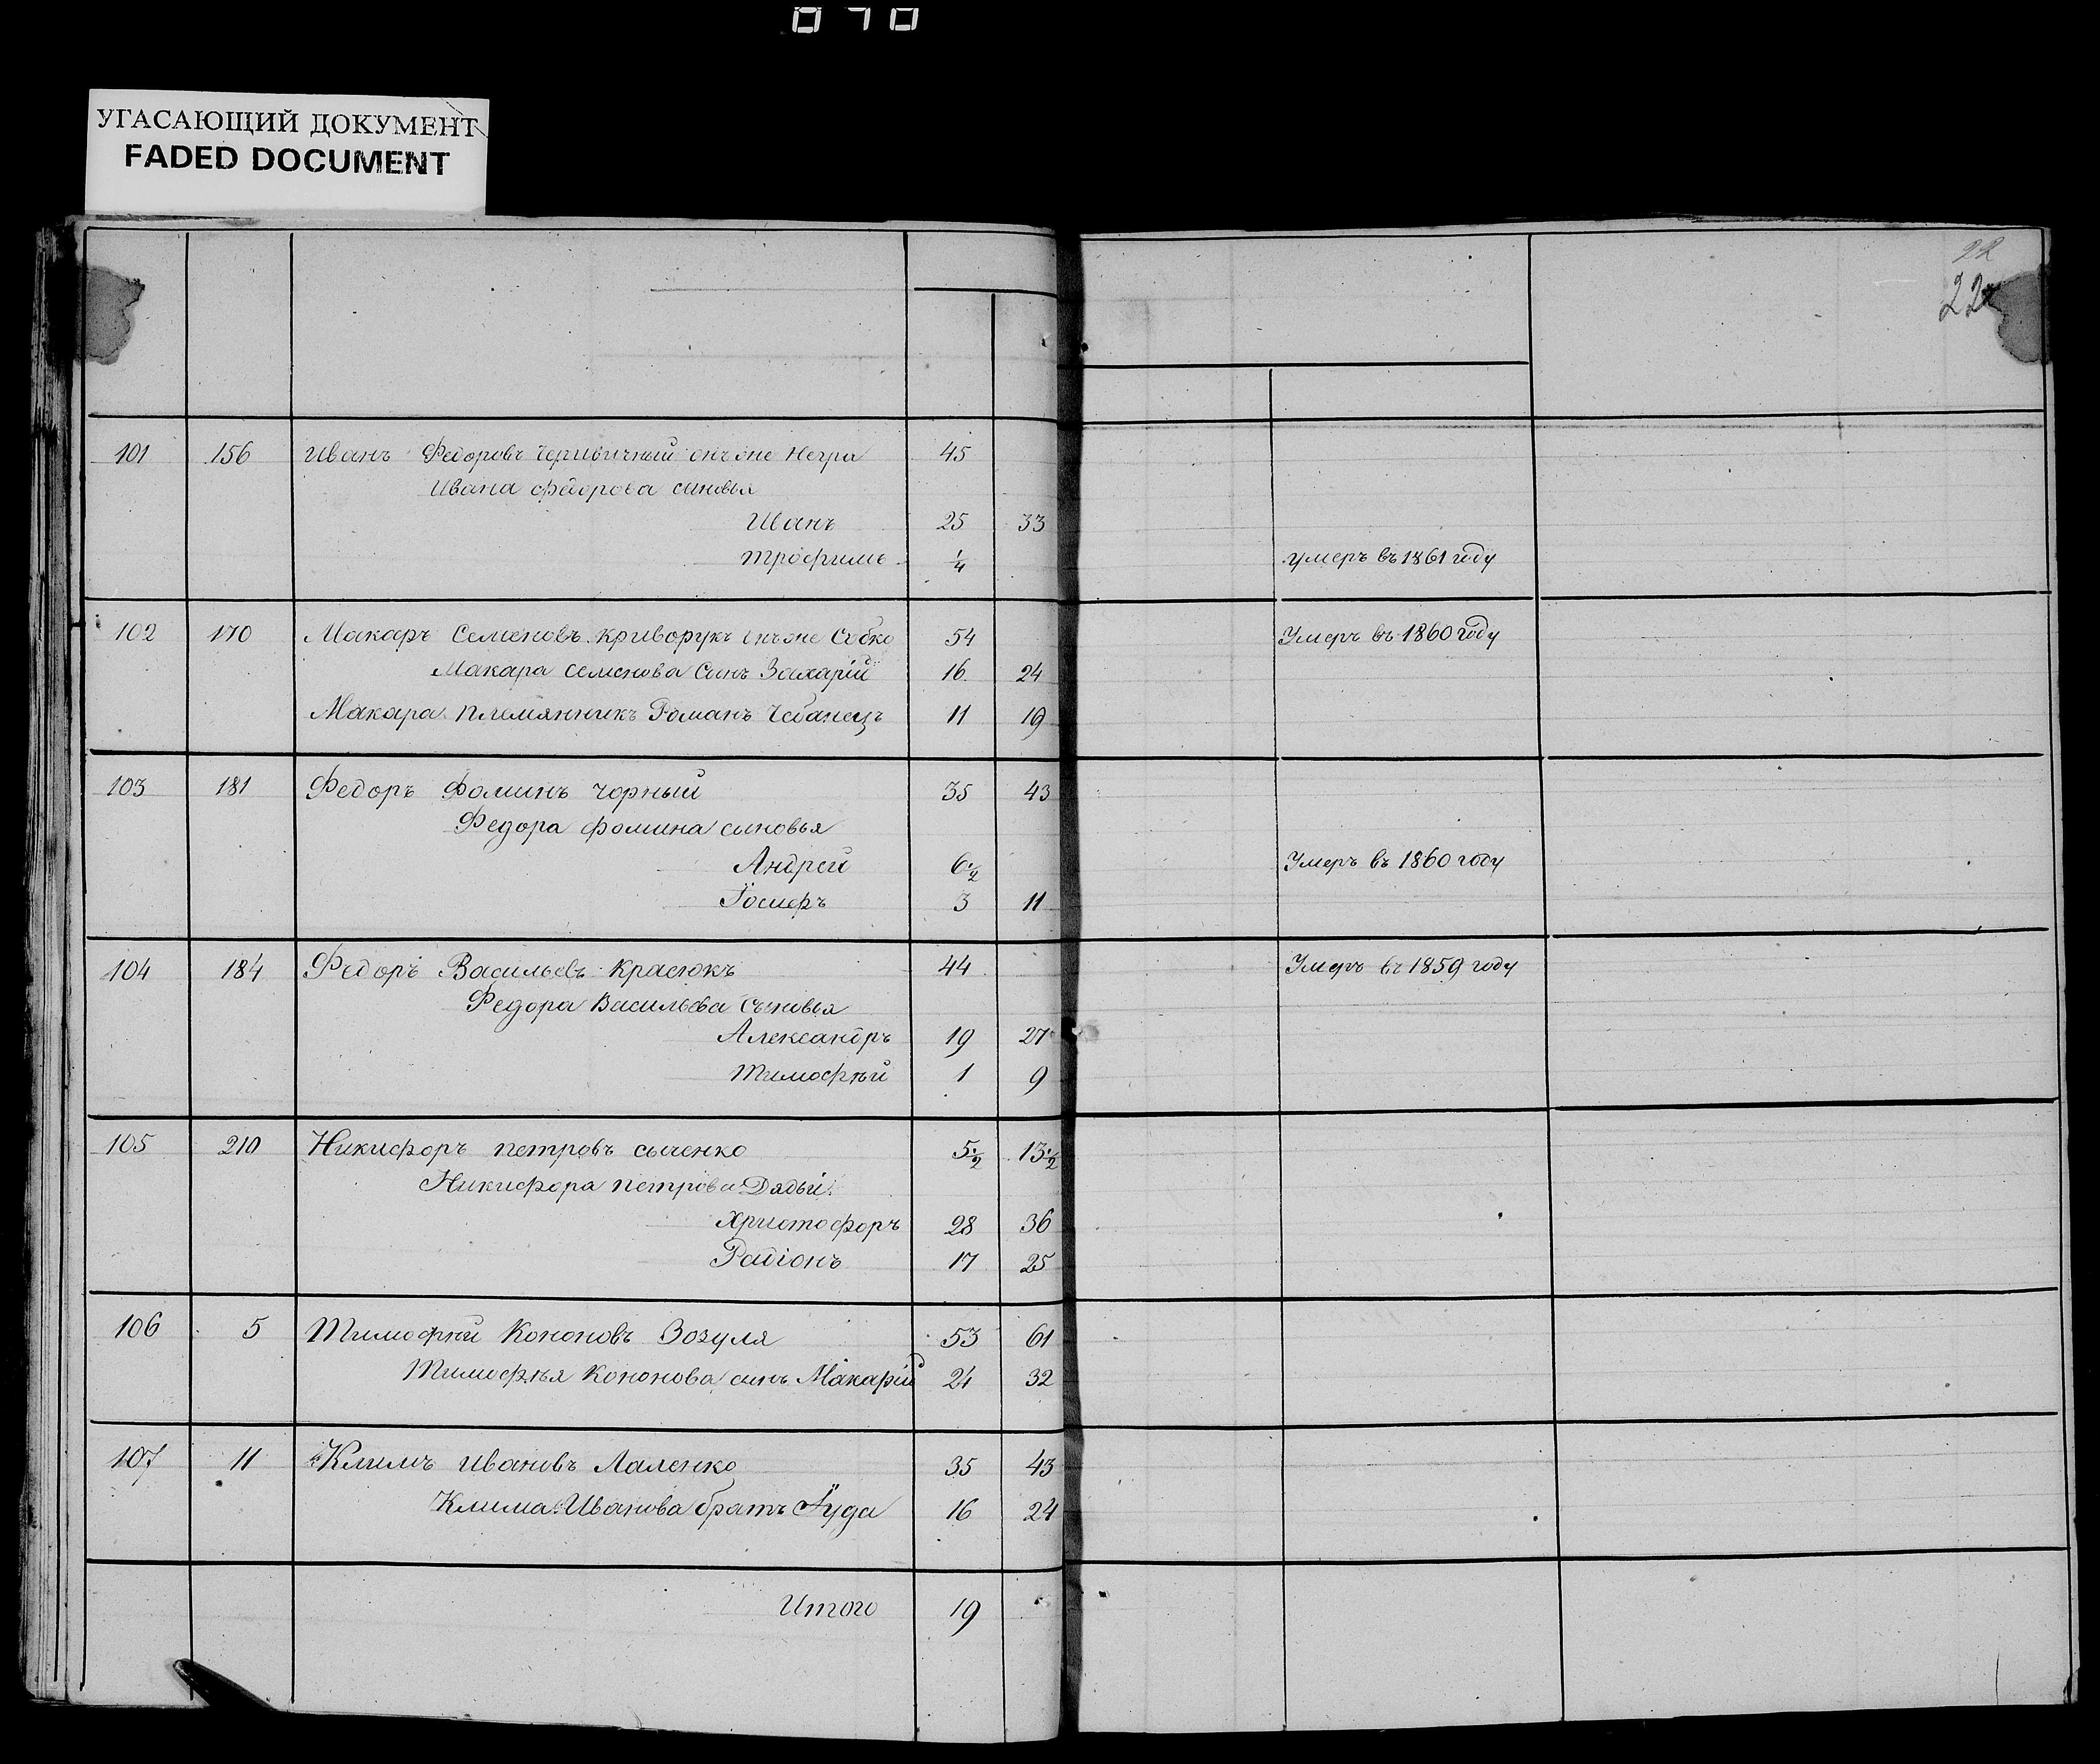 070
УГАСАЮЩИЙ ДОКУМЕНТ
FADED DOCUMENT
22
22
101 156 Иванъ Федоровъ Червичный онъ же Негра 45
Ивана Федорова сыновья
Иванъ 25 33
Трофимъ 1/4 умеръ въ 1861 году
102 170 Макаръ Семеновъ Криворукъ онъ же Собко 54 Умеръ въ 1860 году
Макара Семенова Сынъ Захарій 16 24
Макара племянникъ Романъ Чебанецъ 11 19
103 181 Федоръ Фоминъ Чорный 35 43
Федора Фомина сыновья
Андрей 6 1/2 Умеръ въ 1860 году
Іосифъ 3 11
104 184 Федоръ Васильевъ Красюкъ 44 Умеръ въ 1859 году
Федора Васильева Сыновья
Александръ 19 27
Тимофѣй 1 9
105 210 Никифоръ Петровъ Сыченко 5 1/2 13 1/2
Никифора Петрова Дядьи
Христофоръ 28 36
Радіонъ 17 25
106 5 Тимофѣй Кононовъ Зозуля 53 61
Тимофѣя Кононова сынъ Макарій 24 32
107 11 Климъ Ивановъ Лаленко 35 43
Клима Иванова братъ Іуда 16 24
Итого 19